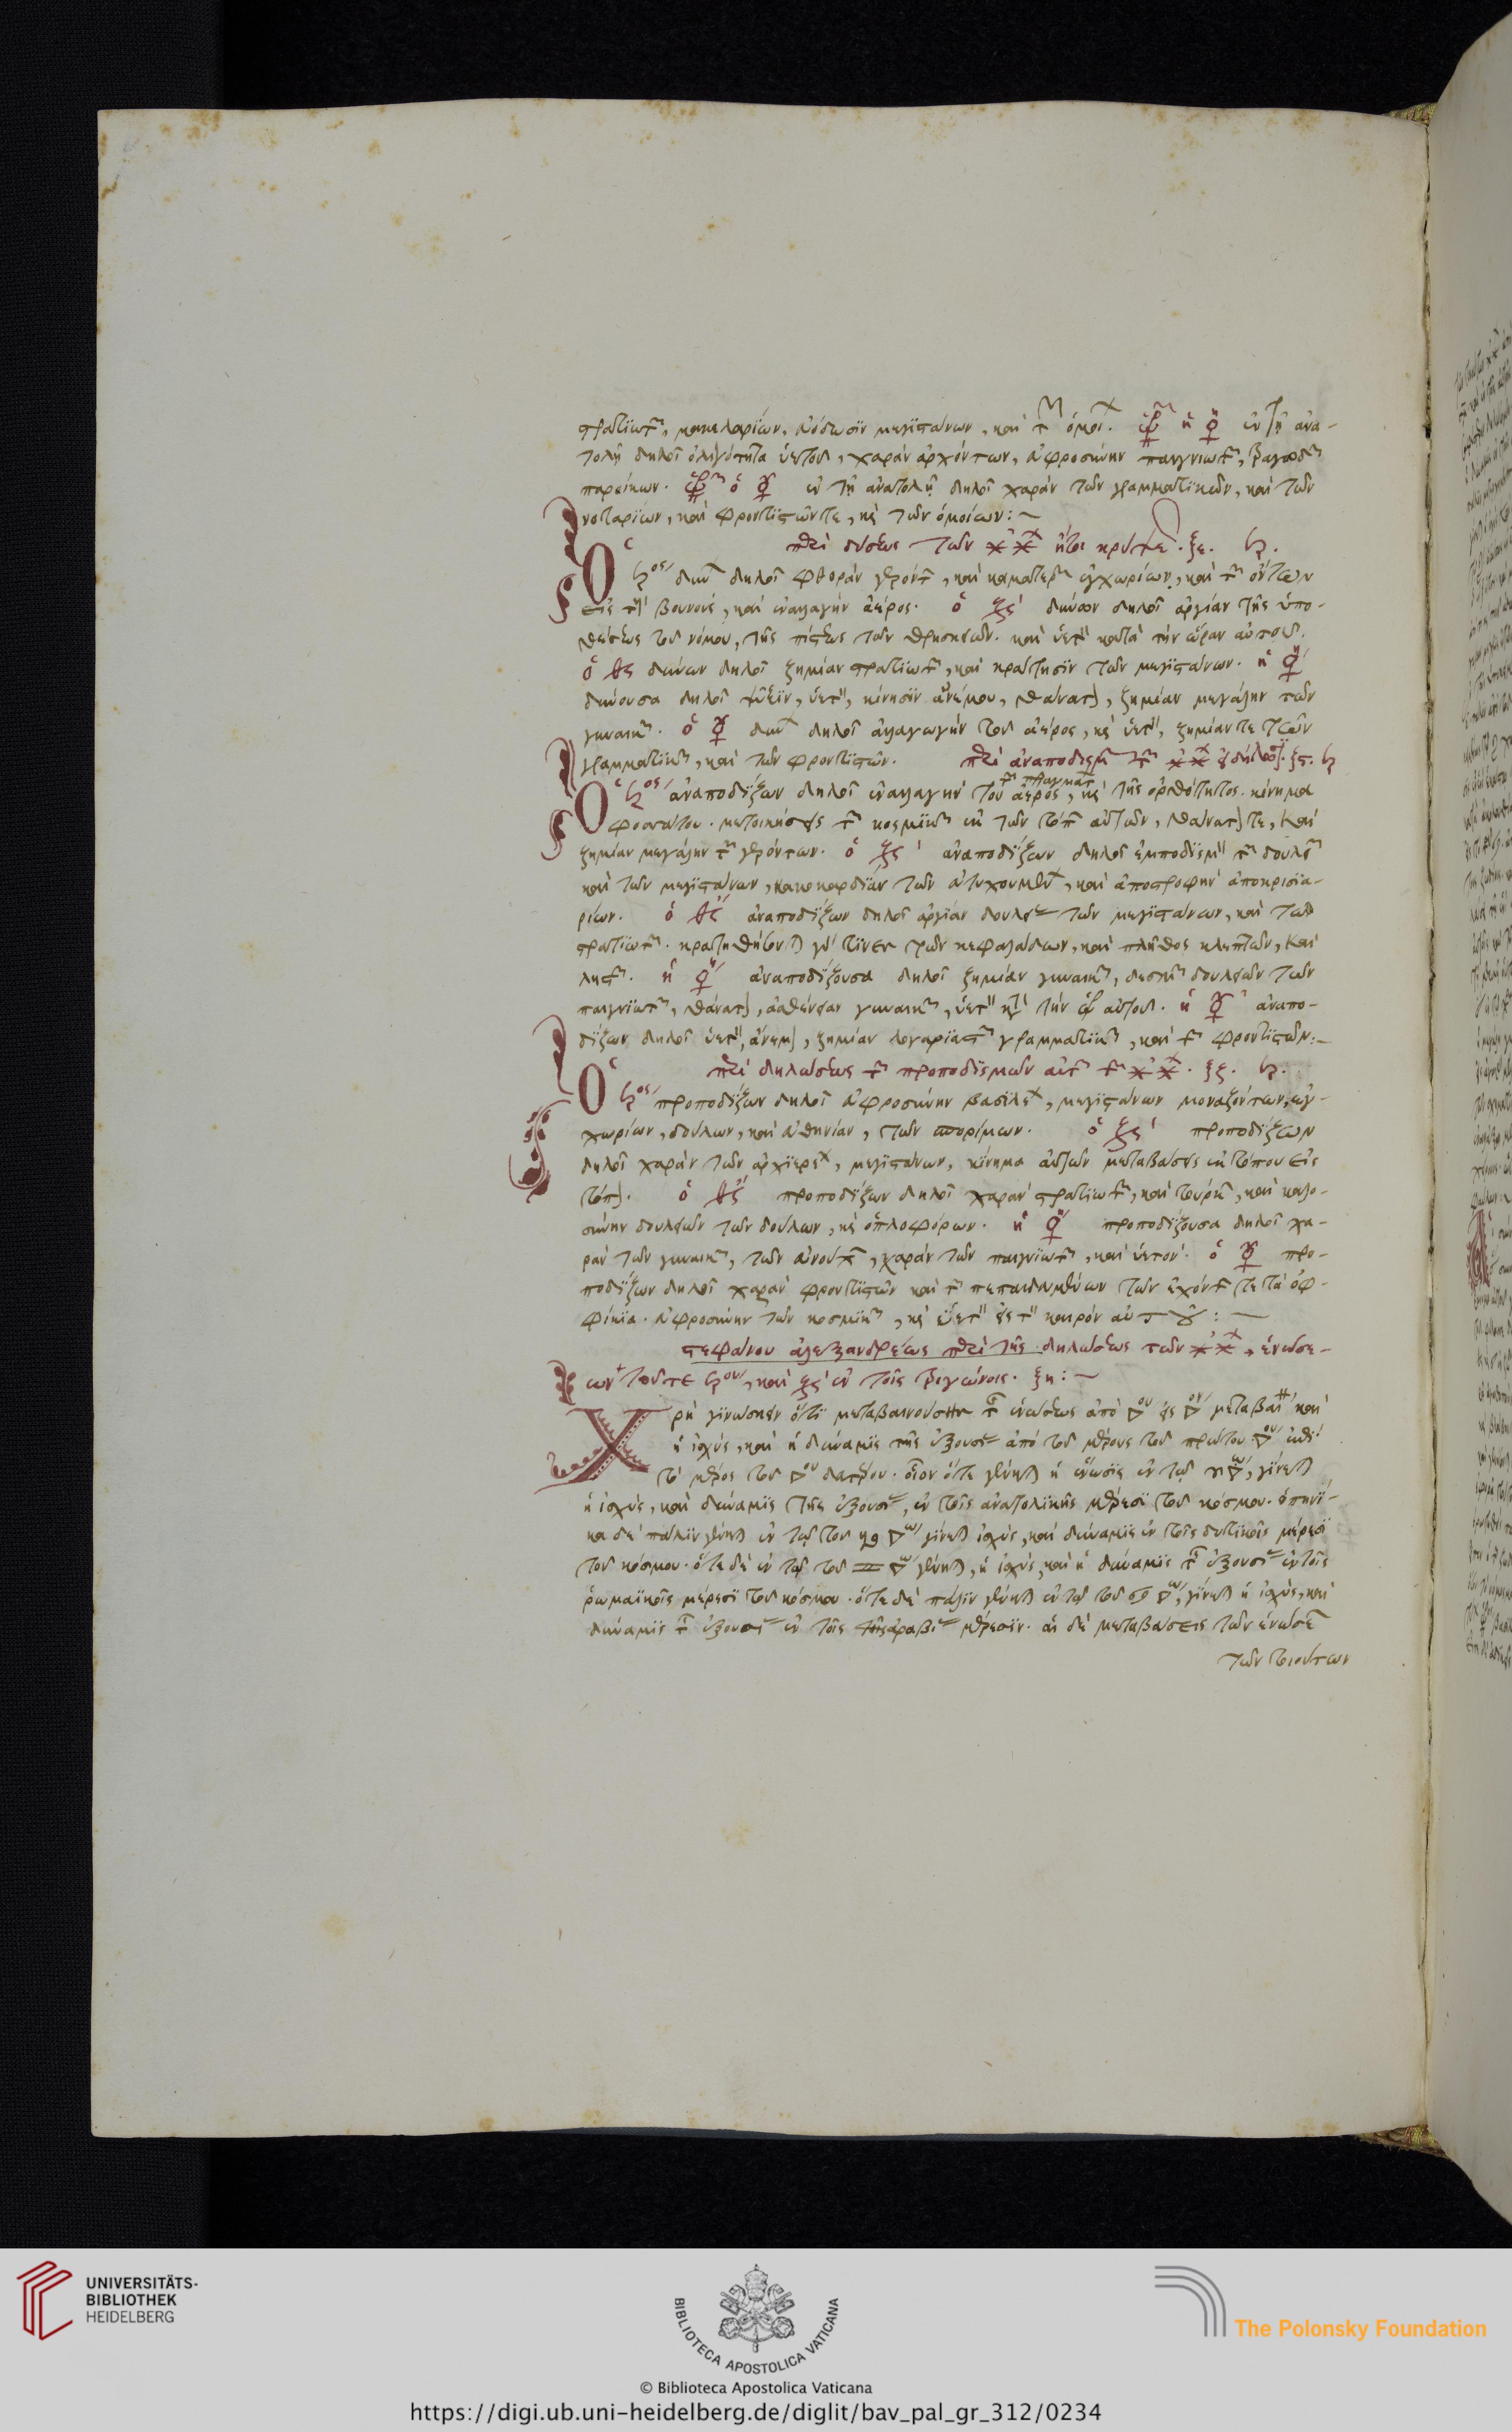 στρατιωτ, μακελαρίων, εὐόδωσιν μεγιστάνων, καὶ τ ὁμοι. ἡ ♀ ἐν τῇ ἀνα-
τολῇ δηλοῖ ὀλιγότητα ὑετοῦ, χαρὰν ἀρχόντων, εὐφροσύνην παιγνιωτ,
ὁ ☿ ἐν τῇ ἀνατολῇ δηλοῖ χαρὰν τῶν γραμματικῶν, καὶ τῶν
νοταρίων, καὶ φροντιστῶν τε, κὲ τῶν ὁμοίων:~
περὶ δύσεως τῶν ἤτοι κρύψε. ξε. ♄.
Ὁ ♄ος δυν δηλοῖ φθορὰν γεροντ, καὶ καματερ ἐγχωρίων, καὶ τ ὄντων
εἰς τ βουνούς, καὶ ἐναλαγὴν ἀέρος. ὁ δύνων δηλοῖ ἀργίαν τῆς ὑπο-
θέσεως τοῦ νόμου, τῆς πίστεως τῶν θρησκειῶν. καὶ ὑετ κατὰ τὴν ὥραν αὐτοῦ.
ὁ δύνων δηλοῖ ζημίαν στρατιωτ, καὶ κράτησιν τῶν μεγιστάνων. ἡ ♀
δύνουσα δηλοῖ ψύξιν, ὑετ, κίνησιν ἀνέμου, θάνατ, ζημίαν μεγάλην τῶν
γυναικ. ὁ ☿ δυν δηλοῖ ἀλαγωγὴν τοῦ ἀέρος, κὲ ὑετ, ζημίαν τε τῶν
γραμματικ, καὶ τῶν φροντιστῶν. περὶ ἀναποδισμ τ ξϛ. ♄
Ὁ ♄ος ἀναποδίζων δηλοῖ ἐναλαγὴν τοῦ ἀέρος, τ πραγματ κὲ τῆς ὀρθότητος. κίνημα
φοσάτου. μετοικήσεις τ κοσμικ ἐκ τῶν τόπ αὐτῶν, θάνατ τε, καὶ
ζημίαν μεγάλην τ γερόντων. ὁ ἀναποδίζων δηλοῖ ἐμποδισμ τ δουλει
καὶ τῶν μεγιστάνων, κακοκαρδίαν τῶν εὐτυχουμεν, καὶ ἀποστροφὴν ἀποκρισια-
ρίων. ὁ ἀναποδίζων δηλοῖ ἀργίαν δουλει τῶν μεγιστάνων, καὶ τῶν
στρατιωτ. κρατηθήσονται γὰρ τινες τῶν κεφαλάδων, καὶ πλῆθος κλεπτῶν, καὶ
ληστ. ἡ ♀ ἀναποδίζουσα δηλοῖ ζημίαν γυναικ, δεσμ δουλειῶν τῶν
παιγνιωτ, θάνατ, ἀσθένειαν γυναικ, ὑετ κατὰ τὴν αὐτοῦ. ἡ ☿ ἀναπο-
δίζων δηλοῖ ὑετ, ἄνεμ, ζημίαν λογαριαστ γραμματικ, καὶ τ φροντιστῶν:-
περὶ δηλώσεως τ προποδισμῶν αὐτ τ ξζ. ♄.
Ὁ ♄ος προποδίζων δηλοῖ εὐφροσύνην βασιλε, μεγιστάνων μοναζόντων, ἐγ-
χωρίων, δούλων, καὶ εὐθηνίαν, τῶν σπορίμων. ὁ προποδίζων
δηλοῖ χαρὰν τῶν ἀρχιερε, μεγιστάνων, κίνημα αὐτῶν μεταβάσεις ἐκ τόπου εἰς
τόπ. ὁ προποδίζων δηλοῖ χαρὰν στρατιωτ, καὶ τουρκ, καὶ καλο-
σύνην δουλειῶν τῶν δούλων, κὲ ὁπλοφόρων. ἡ ♀ προποδίζουσα δηλοῖ χα-
ρὰν τῶν γυναικ, τῶν εὐνούχ, χαρὰν τῶν παιγνιωτ, καὶ ὑετόν. ὁ ☿ προ-
ποδίζων δηλοῖ χαρὰν φροντιστῶν καὶ τ πεπαιδευμένων τῶν ἐχόντ τε τὰ ὀφ-
φίκια. εὐφροσύνην τῶν κοσμικ, κὲ ὑετ εἰς τ καιρὸν αὐτοῦ:—
στεφάνου ἀλεξανδρέως περὶ τῆς δηλώσεως τῶν ἑνώσε-
ων τοῦ τε ♄ου, καὶ ἐν τοῖς τριγώνοις. ξη:~
Χρὴ γινώσκειν ὅτι μεταβαινούσης τ ἑνώσεως ἀπὸ ▽ου εἰς ▽ον μεταβαί καὶ
ἡ ἰσχύς, καὶ ἡ δύναμις τῆς ἐξουσί ἀπὸ τοῦ μέρους τοῦ πρώτου ▽ου ἐπὶ
τὸ μέρος τοῦ ▽ου δευτέρου. οἷον ὅτε γένηται ἡ ἕνωσις ἐν τῷ ♈ ▽ω, γίνεται
ἡ ἰσχύς, καὶ δύναμις τῆς ἐξουσί, ἐν τοῖς ἀνατολικῆς μέρεσι τοῦ κόσμου. ὁπηνί-
κα δὲ πάλιν γένηται ἐν τῷ τοῦ ▽ω γίνεται ἰσχύς, καὶ δύναμις ἐν τοῖς δυτικοῖς μέρεσι
τοῦ κόσμου. ὅτε δὲ ἐν τῷ τοῦ ♊ ▽ω γένηται, ἡ ἰσχύς, καὶ ἡ δύναμις τ ἐξουσί ἐν τοῖς
ῥωμαϊκοῖς μέρεσι τοῦ κόσμου. ὅτε δὲ πάλιν γένηται ἐν τῷ τοῦ ♋ ▽ω, γίνεται ἡ ἰσχύς, καὶ
δύναμις τ ἐξουσί ἐν τοῖς ἀραβι μέρεσιν. αἱ δὲ μεταβάσεις τῶν ἑνώσε
τῶν τοιούτων
UNIVERSITÄTS-
BIBLIOTHEK
HEIDELBERG
BIBLIOTECA APOSTOLICA VATICANA
The Polonsky Foundation
© Biblioteca Apostolica Vaticana
https://digi.ub.uni-heidelberg.de/diglit/bav_pal_gr_312/0234